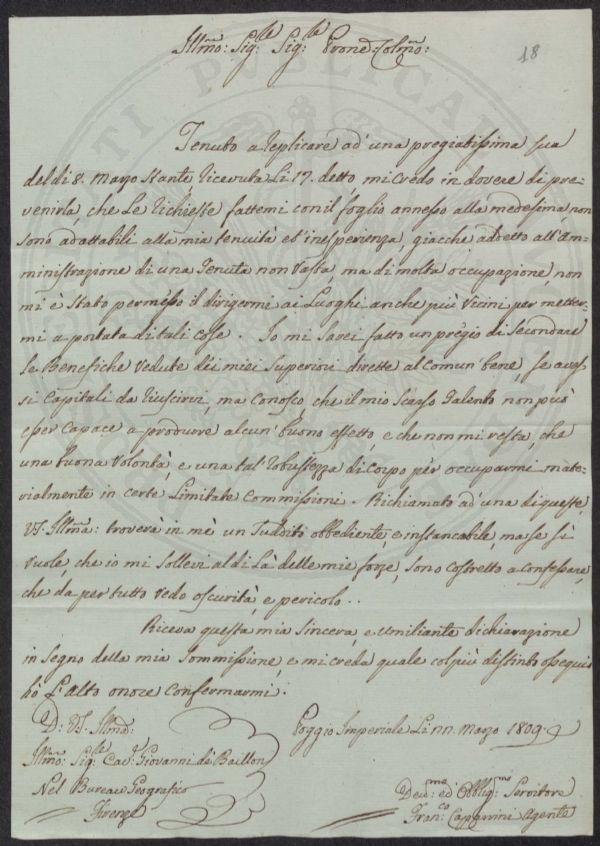 Illmo: Sig:le Sig:le Prone Colmo:
18
Tenuto a replicare ad' una pregiatissima sua
del dì 8. Marzo stante, ricevuta li 17. detto, mi credo in dovere di pre-
venirla, che Le richieste fattemi con il foglio annesso alla medesima, non
sono adattabili alla mia tenuità ed' inesperienza, giacchè addetto all' Am-
ministrazione di una Tenuta non vasta, ma di molta occupazione, non
mi è stato permesso il dirigermi ai Luoghi anche più Vicini per metter-
mi a portata di tali cose. Io mi sarei fatto un pregio di secondare
le Benefiche vedute dei miei Superiori dirette al comun' bene, se aves-
si Capitali da riuscirvi, ma Conosco che il mio scarso Talento non può
esser Capace a produrre alcun' buono effetto, e che non mi resta, che
una buona volontà, e una tal' robustezza di Corpo per occuparmi mate-
rialmente in certe Limitate Commissioni. Richiamato ad' una di queste
VS. Illma: troverà in mè un Suddito obbediente, e instancabile, ma se si
vuole, che io mi sollevi al di là delle mie forze, sono costretto a Confessare,
che da per tutto vedo oscurità, e pericolo..
Riceva questa mia sincera, e umiliante dichiarazione
in segno della mia sommissione, e mi creda quale col più distinto ossequio
hò L'alto onore Confermarmi.
D: VS. Illma:
Poggio Imperiale Li Marzo 1809.
Illmo: Sig:le Cav:e Giovanni de' Baillou
Nel Bureau Geografico
Firenze
Devmo ed' Obblig:mo Servitore
Fran:co Capparini Agente